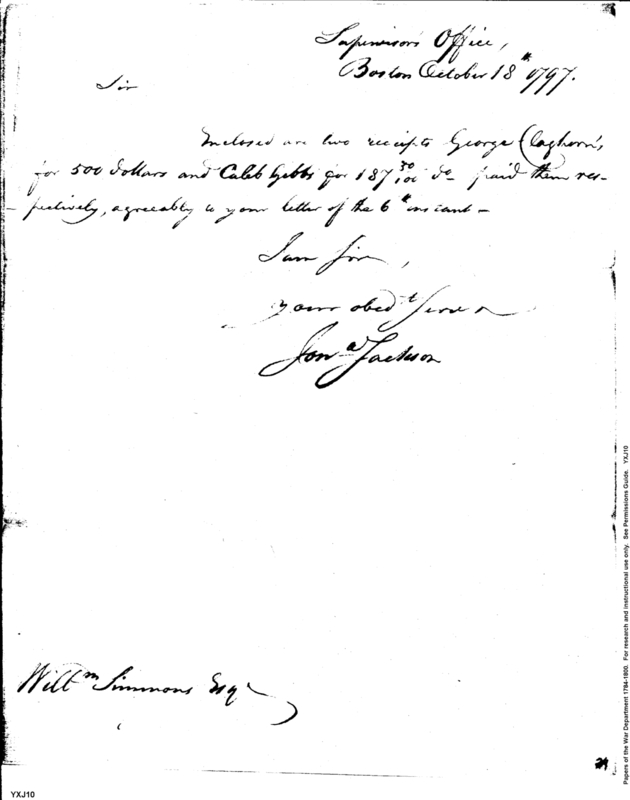 Supervisor's Office,
Boston October 18th 1797.
Sir
Inclosed are two receipts George Claghorn's
for 500 dollars and Caleb Gibbs for 187 50/100 do paid them res-
pectively, agreeably to your letter of the 6th instant –
I am Sir,
your obedt Servt
Jona Jackson
Willm Simmons Esqr
Papers of the War Department 1784-1800. For research and instructional use only. See Permissions Guide. YXJ10
YXJ10